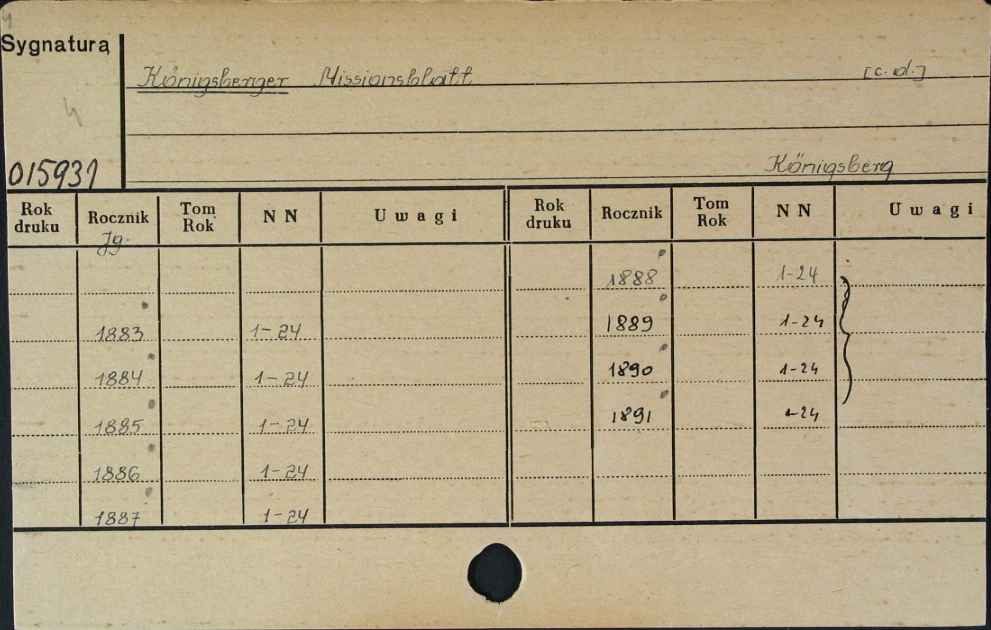 4
Sygnatura
Königsberger Missionsblatt [c.d.]
4
015931
Königsberg
Rok druku Rocznik Tom Rok NN Uwagi Rok druku Rocznik Tom Rok NN Uwagi
Jg.
1888 1-24
1883 1-24 1889 1-24
1884 1-24 1890 1-24
1885 1-24 1891 1-24
1886 1-24
1887 1-24